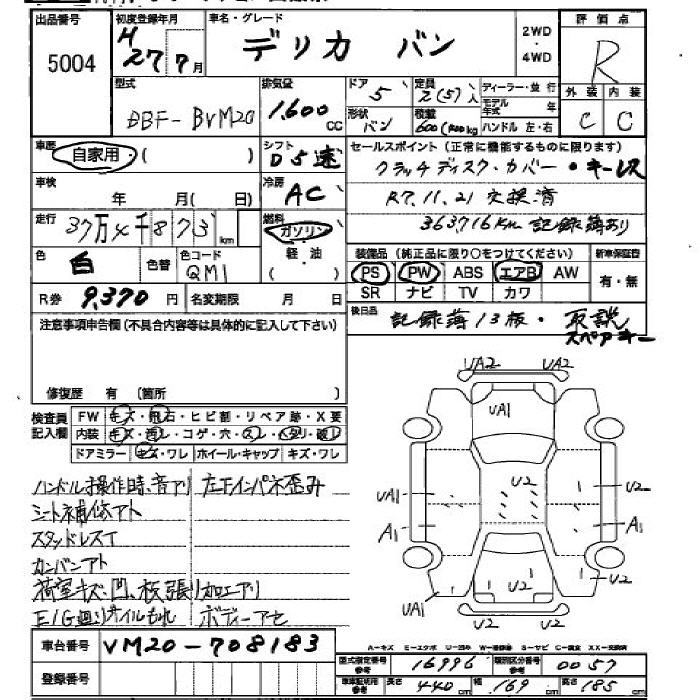 出品番号 初度登録年月 車名・グレード 2WD・4WD 評価点
5004 H27年7月 デリカ バン R
型式 排気量 ドア 定員 ディーラー・並行 外装 内装
DBF-BVM20 1,600cc 5 2(5)人 モデル年式 年 C C
形状 バン 積載 600(400)kg ハンドル 左・右
車歴 自家用・( ) シフト D5速 セールスポイント(正常に機能するものに限ります)
クラッチディスク・カバー・キーレス
車検 年 月( 日) 冷房 AC R7.11.21 交換済
走行 37万4千873km 燃料 ガソリン・軽油・( ) 363716Km 記録簿あり
色 白 色替 色コード QM1 装備品(純正品に限り○をつけてください) 新車保証書
PS PW ABS エアB AW 有・無
SR ナビ TV カワ
R券 9,370円 名変期限 月 日
注意事項申告欄(不具合内容等は具体的に記入して下さい) 後日品 記録簿13版・取説
スペアキー
修復歴 有(箇所 )
検査員記入欄 FW キズ・飛石・ヒビ割・リペア跡・X要
内装 キズ・汚レ・コゲ・穴・スレ・ヘタリ・破レ
ドアミラー キズ・ワレ ホイール・キャップ キズ・ワレ
UA2 UA2
UA1
ハンドル操作時、音アリ 左下インパネ歪み
シート補修アト
スタッドレスT
カンバンアト
荷室キズ、凹、板張り加工アリ
E/G廻りオイルもれ ボディーアセ
UA1 U2 U2
A1 A1
UA1 U2
U2 U2
車台番号 VM20-708183
A-キズ E-エクボ U-凹み W-補修跡 S-サビ C-腐食 XX-交換済
登録番号 型式指定番号 参考 16996 類別区分番号 参考 0057
車車証明用 参考 長さ 440cm 幅 169cm 高さ 185cm